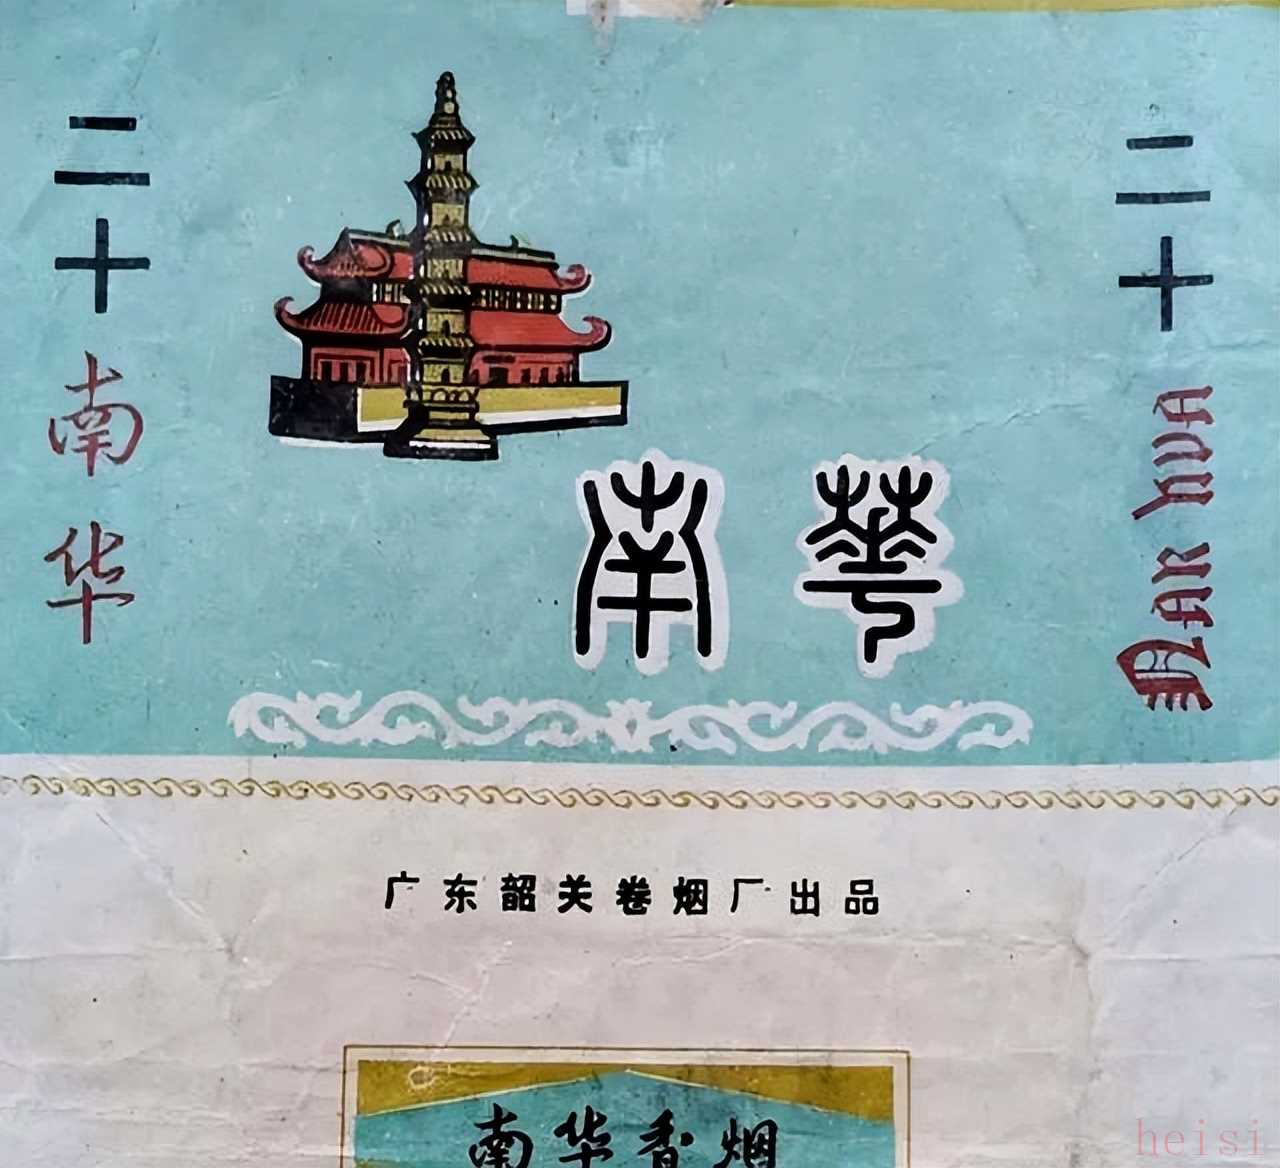 二十
南华
南華
二十
NAN HUA
广东韶关卷烟厂出品
南华香烟
heisi